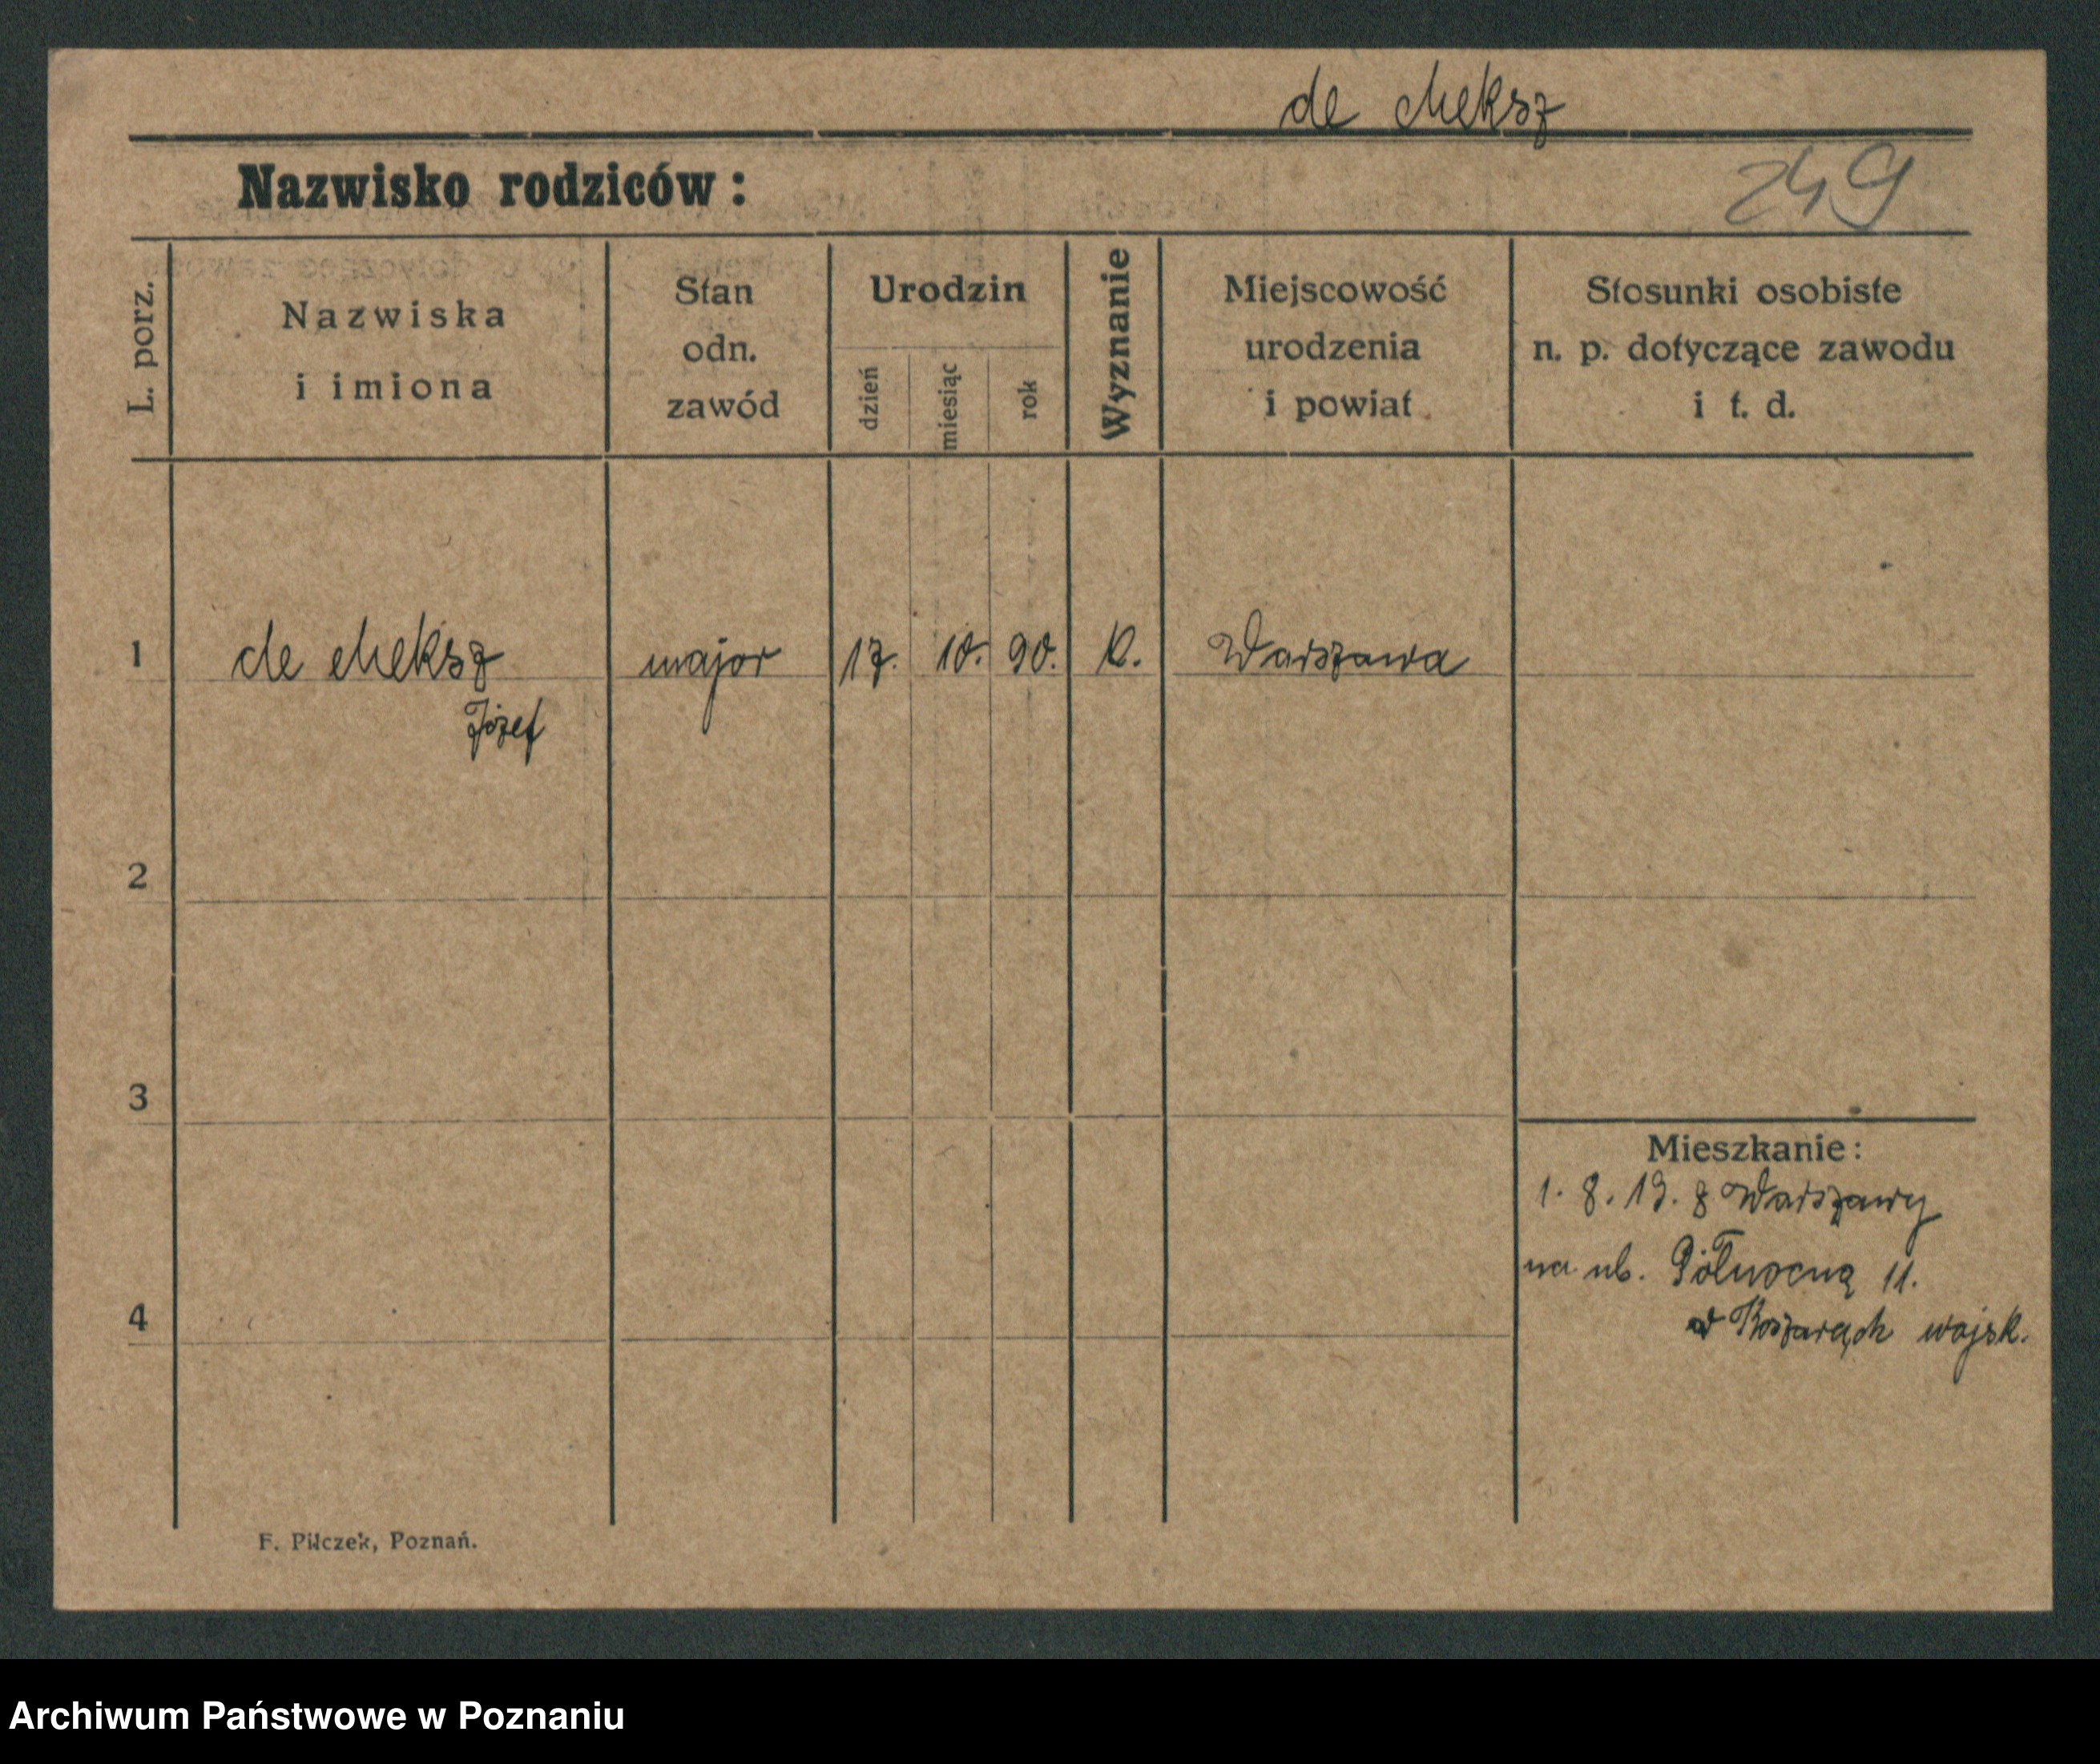 de Meksz
Nazwisko rodziców:
249
L. porz.
Nazwiska
i imiona
Stan
odn.
zawód
Urodzin
dzień
miesiąc
rok
Wyznanie
Miejscowość
urodzenia
i powiat
Stosunki osobiste
n. p. dotyczące zawodu
i t. d.
1 de Meksz major 17. 10. 90. k. Warszawa
Józef
2
3
Mieszkanie:
1. 8. 19. z Warszawy
na ul. Północną 11.
4
w Koszarach wojsk.
F. Pilczek, Poznań.
Archiwum Państwowe w Poznaniu